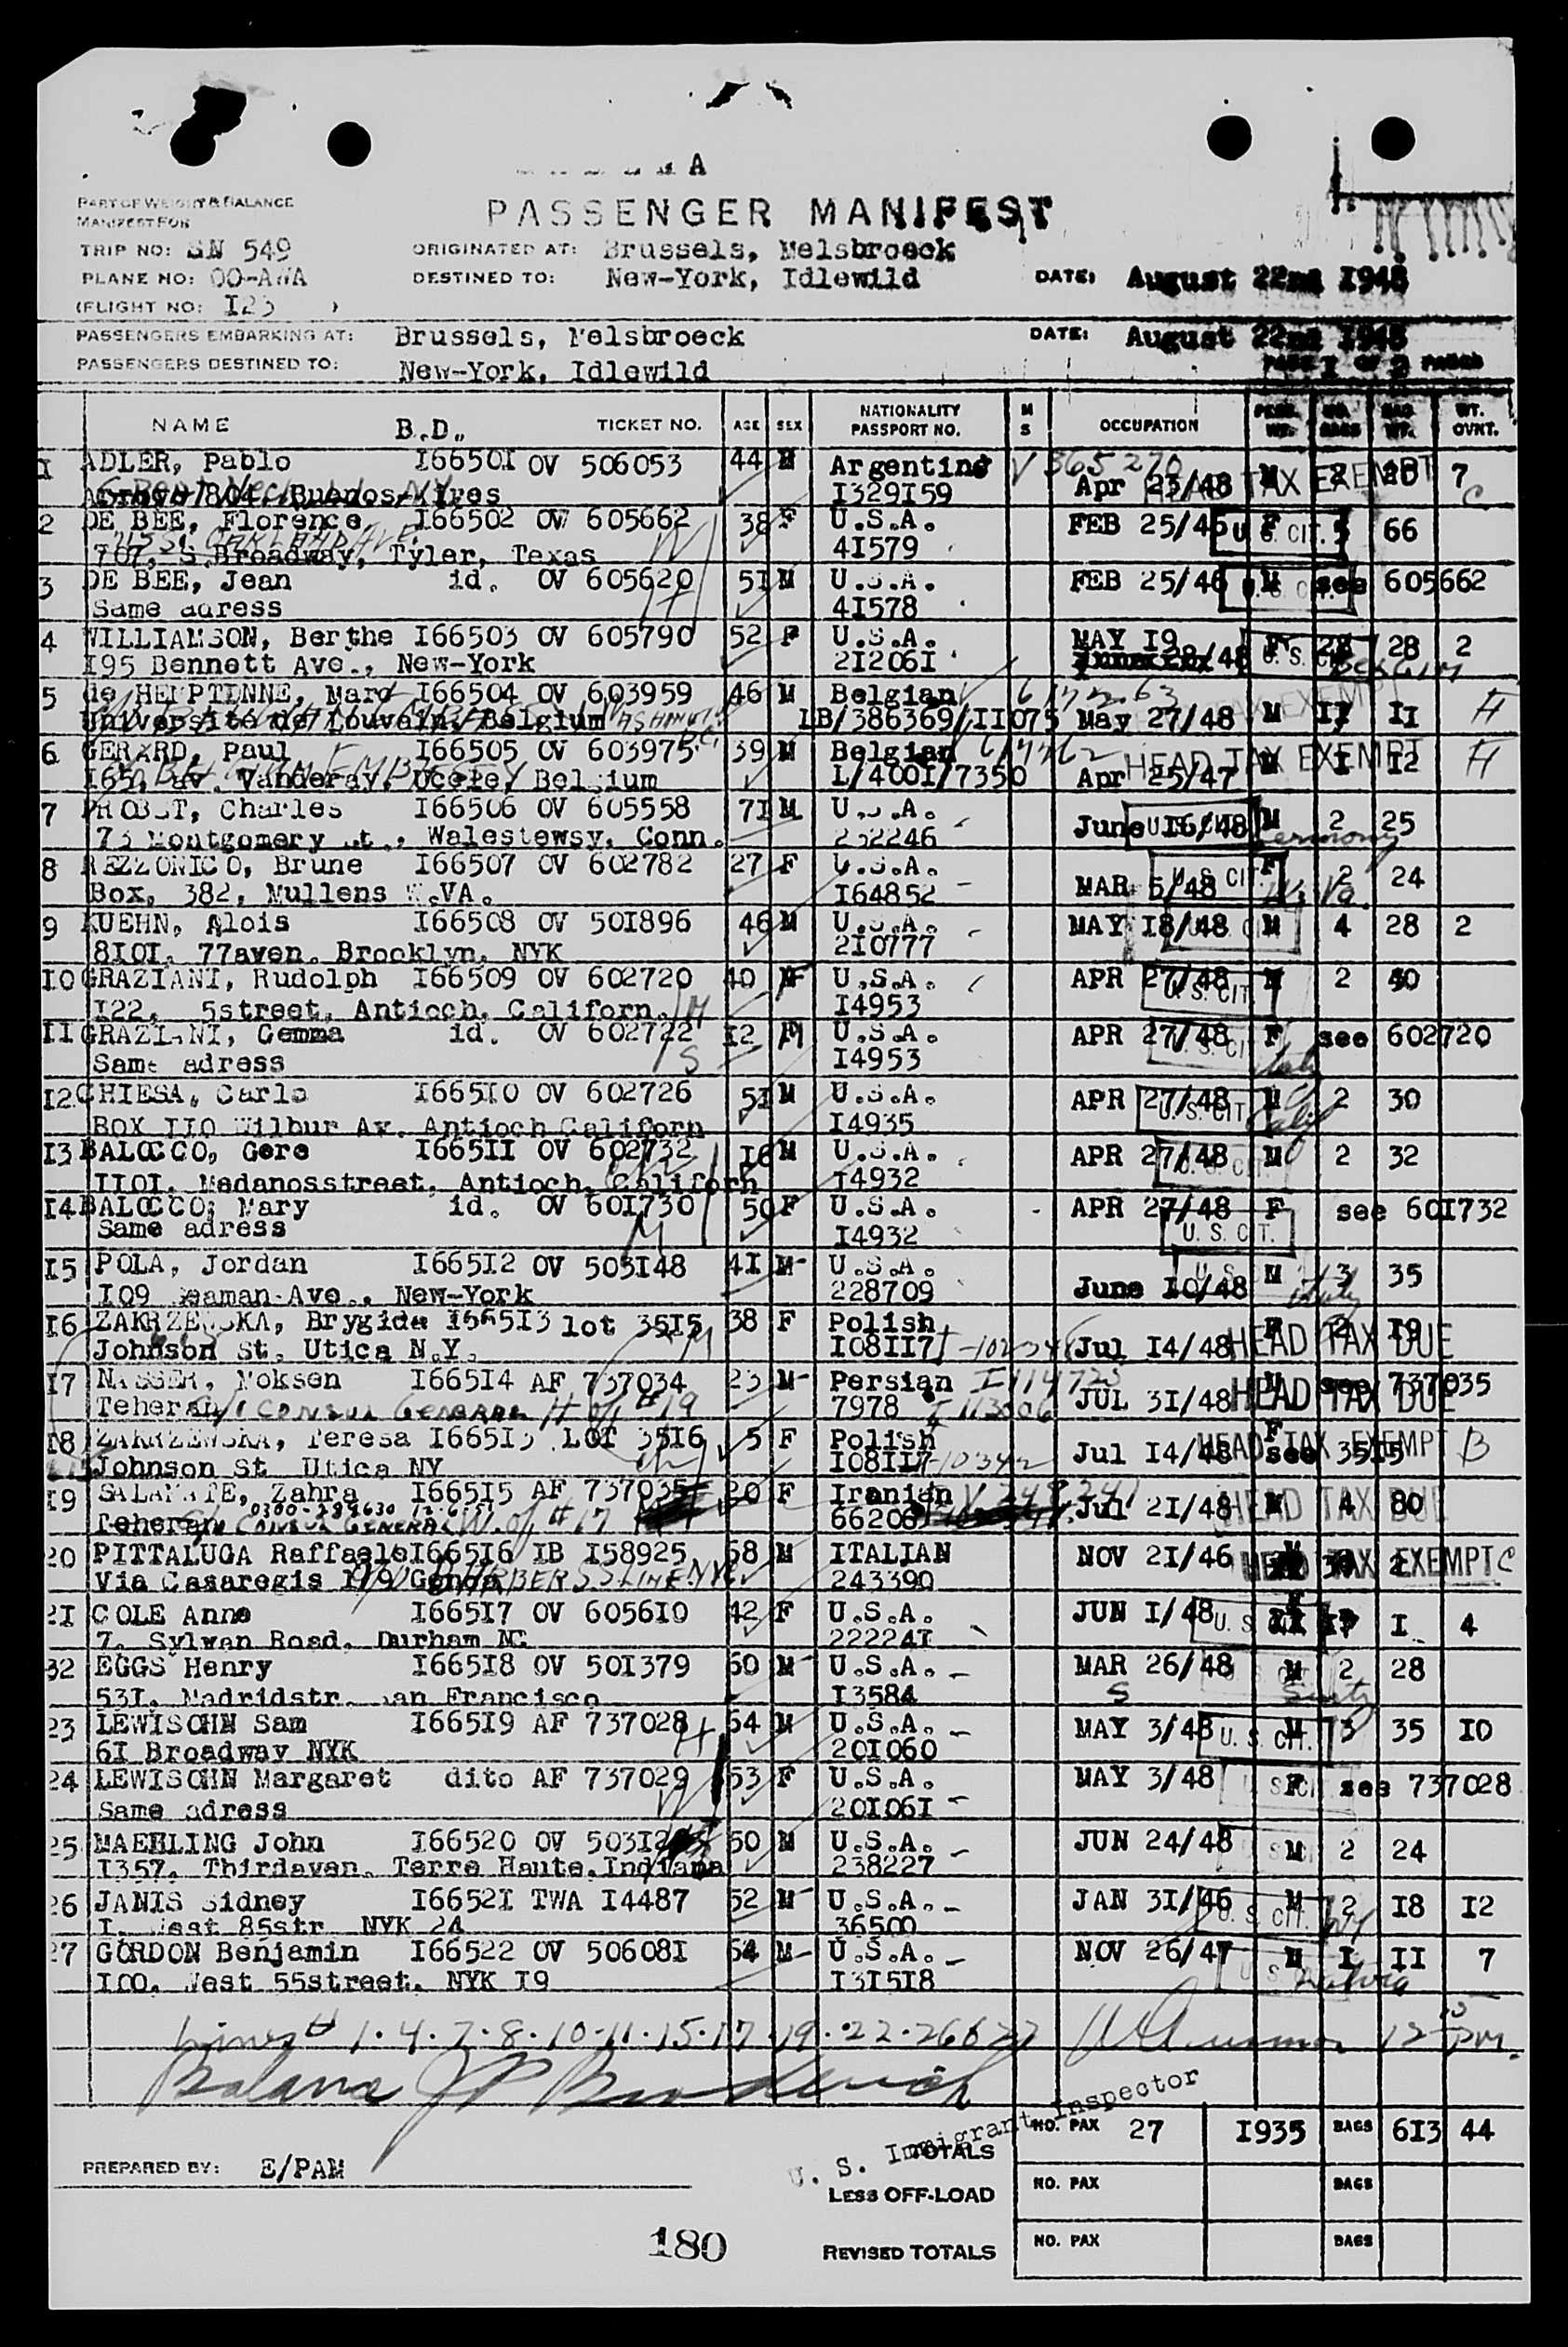 A
PART OF WEIGHT & BALANCE
MANIFEST FOR
PASSENGER MANIFEST
TRIP NO: SN 549 ORIGINATED AT: Brussels, Melsbroeck
PLANE NO: OO-AWA DESTINED TO: New-York, Idlewild DATE: August 22nd I948
(FLIGHT NO: I23 )
PASSENGERS EMBARKING AT: Brussels, Melsbroeck DATE: August 22nd I948
PASSENGERS DESTINED TO: New-York, Idlewild PAGE I OF 2 PAGES
NAME B.D. TICKET NO. AGE SEX NATIONALITY PASSPORT NO. M S OCCUPATION PASS. WT. NO. BAGS BAG. WT. WT. OVNT.
I ADLER, Pablo I6650I OV 506053 44 M Argentine V 365270 M 2 20 7
Arroyo 804, Buenos-Aires I329I59 Apr 23/48 HEAD TAX EXEMPT C
2 DE BEE, Florence I66502 OV 605662 38 F U.S.A. FEB 25/46 F U. S. CIT. 66
707, S.Broadway, Tyler, Texas W 4I579
3 DE BEE, Jean id. OV 605620 5I M U.S.A. FEB 25/46 M U. S. CIT. see 605662
Same adress H 4I578
4 WILLIAMSON, Berthe I66503 OV 605790 52 F U.S.A. MAY I9 F 28 2
I95 Bennett Ave., New-York 2I206I /48 U. S. CIT. Belgium
5 de HEMPTINNE, Marc I66504 OV 603959 46 M Belgian
Université de Louvain, Belgium WASHINGTON D.C. LB/386369/II075 May 27/48 M I7 II H
TAX EXEMPT
6 GERARD, Paul I66505 OV 603975 39 M Belgian HEAD TAX EXEMPT H
I65, av. Vanderay, Uccle, Belgium L/400I/7350 Apr 25/47 M I I2
7 PROBST, Charles I66506 OV 605558 7I M U.S.A. June I6/48 U. S. CIT. M 2 25
73 Montgomery St., Walestewsy, Conn. 232246 Germany
8 REZZONICO, Brune I66507 OV 602782 27 F U.S.A. MAR 5/48 U. S. CIT. F 2 24
Box, 382, Mullens W.VA. I64852 W. Va.
9 KUEHN, Alois I66508 OV 50I896 46 M U.S.A. MAY I8/48 M 4 28 2
8I0I, 77aven. Brooklyn, NYK 2I0777
I0 GRAZIANI, Rudolph I66509 OV 602720 40 U.S.A. APR 27/48 U. S. CIT. M 2 40
I22, 5street, Antioch, Californ. M I4953
II GRAZIANI, Gemma id. OV 602722 I2 U.S.A. APR 27/48 U. S. CIT F see 602720
Same adress S I4953 Italy
I2 CHIESA, Carlo I665I0 OV 602726 5I M U.S.A. APR 27/48 U. S. CIT M 2 30
BOX II0 Wilbur Av. Antioch Californ I4935 Calif
I3 BALOCCO, Gere I665II OV 602732 I6 M U.S.A. APR 27/48 U. S. CIT. M 2 32
II0I, Medanosstreet, Antioch, Californ I4932
I4 BALOCCO, Mary id. OV 60I730 50 F U.S.A APR 27/48 F see 60I732
Same adress M I4932 U. S. CIT.
I5 POLA, Jordan I665I2 OV 503I48 4I M U.S.A. June I0/48 U. S. M 3 35
I09 Seaman Ave., New-York 228709 Italy
I6 ZAKRZEWSKA, Brygida I665I3 lot 35I5 38 F Polish F 2 I9
Johnson St. Utica N.Y. M I08II7 Jul I4/48 HEAD TAX DUE
I7 NASSER, Moksen I665I4 AF 737034 23 M Persian see 737035
Teheran CONSUL GENERAL H of #19 7978 JUL 3I/48 HEAD TAX DUE
I8 ZAKRZEWSKA, Teresa I665I3 LOT 35I6 5 F Polish F HEAD TAX EXEMPT B
Johnson St Utica NY I08II7 Jul I4/48 see 35I5
I9 SALAMATE, Zahra I665I5 AF 737035 20 F Iranian
Teheran CONSUL GENERAL W. of #17 66206 Jul 2I/48 HEAD TAX DUE 4 80
20 PITTALUGA Raffaele I665I6 IB I58925 58 M ITALIAN NOV 2I/46 HEAD TAX EXEMPT C
Via Casaregis Genoa BARBER S.S. LINE NY 243390
2I COLE Anne I665I7 OV 6056I0 42 F U.S.A. JUN I/48 U. S. I7 I 4
7, Sylwan Road, Durham NC 22224I
22 EGGS Henry I665I8 OV 50I379 60 M U.S.A. MAR 26/48 M 2 28
53I, Madridstr. San Francisco I3584
23 LEWISOHN Sam I665I9 AF 737028 H 64 M U.S.A. MAY 3/48 U. S. CIT. M 3 35 I0
6I Broadway NYK 20I060
24 LEWISOHN Margaret dito AF 737029 53 F U.S.A. MAY 3/48 U. S. CIT. F see 737028
Same adress W 20I06I
25 MAEHLING John I66520 OV 503I2 50 M U.S.A. JUN 24/48 M 2 24
I357, Thirdaven. Terre Haute, Indiana 238227
26 JANIS Sidney I6652I TWA I4487 52 M U.S.A. JAN 3I/46 U. S. CIT. M 2 I8 I2
I. West 85str. NYK 24 36500 NY
27 GORDON Benjamin I66522 OV 50608I 54 M U.S.A. NOV 26/47 U. S. M I II 7
I00, West 55street, NYK I9 I3I5I8 Latvia
Lines # 1·4·7·8·10·11·15·17·19·22·26 & 27 12 PM.
Balance J P Broderick
U. S. Immigrant Inspector
TOTALS NO. PAX 27 I935 BAGS 6I3 44
PREPARED BY: E/PAM
LESS OFF-LOAD NO. PAX BAGS
REVISED TOTALS NO. PAX BAGS
180